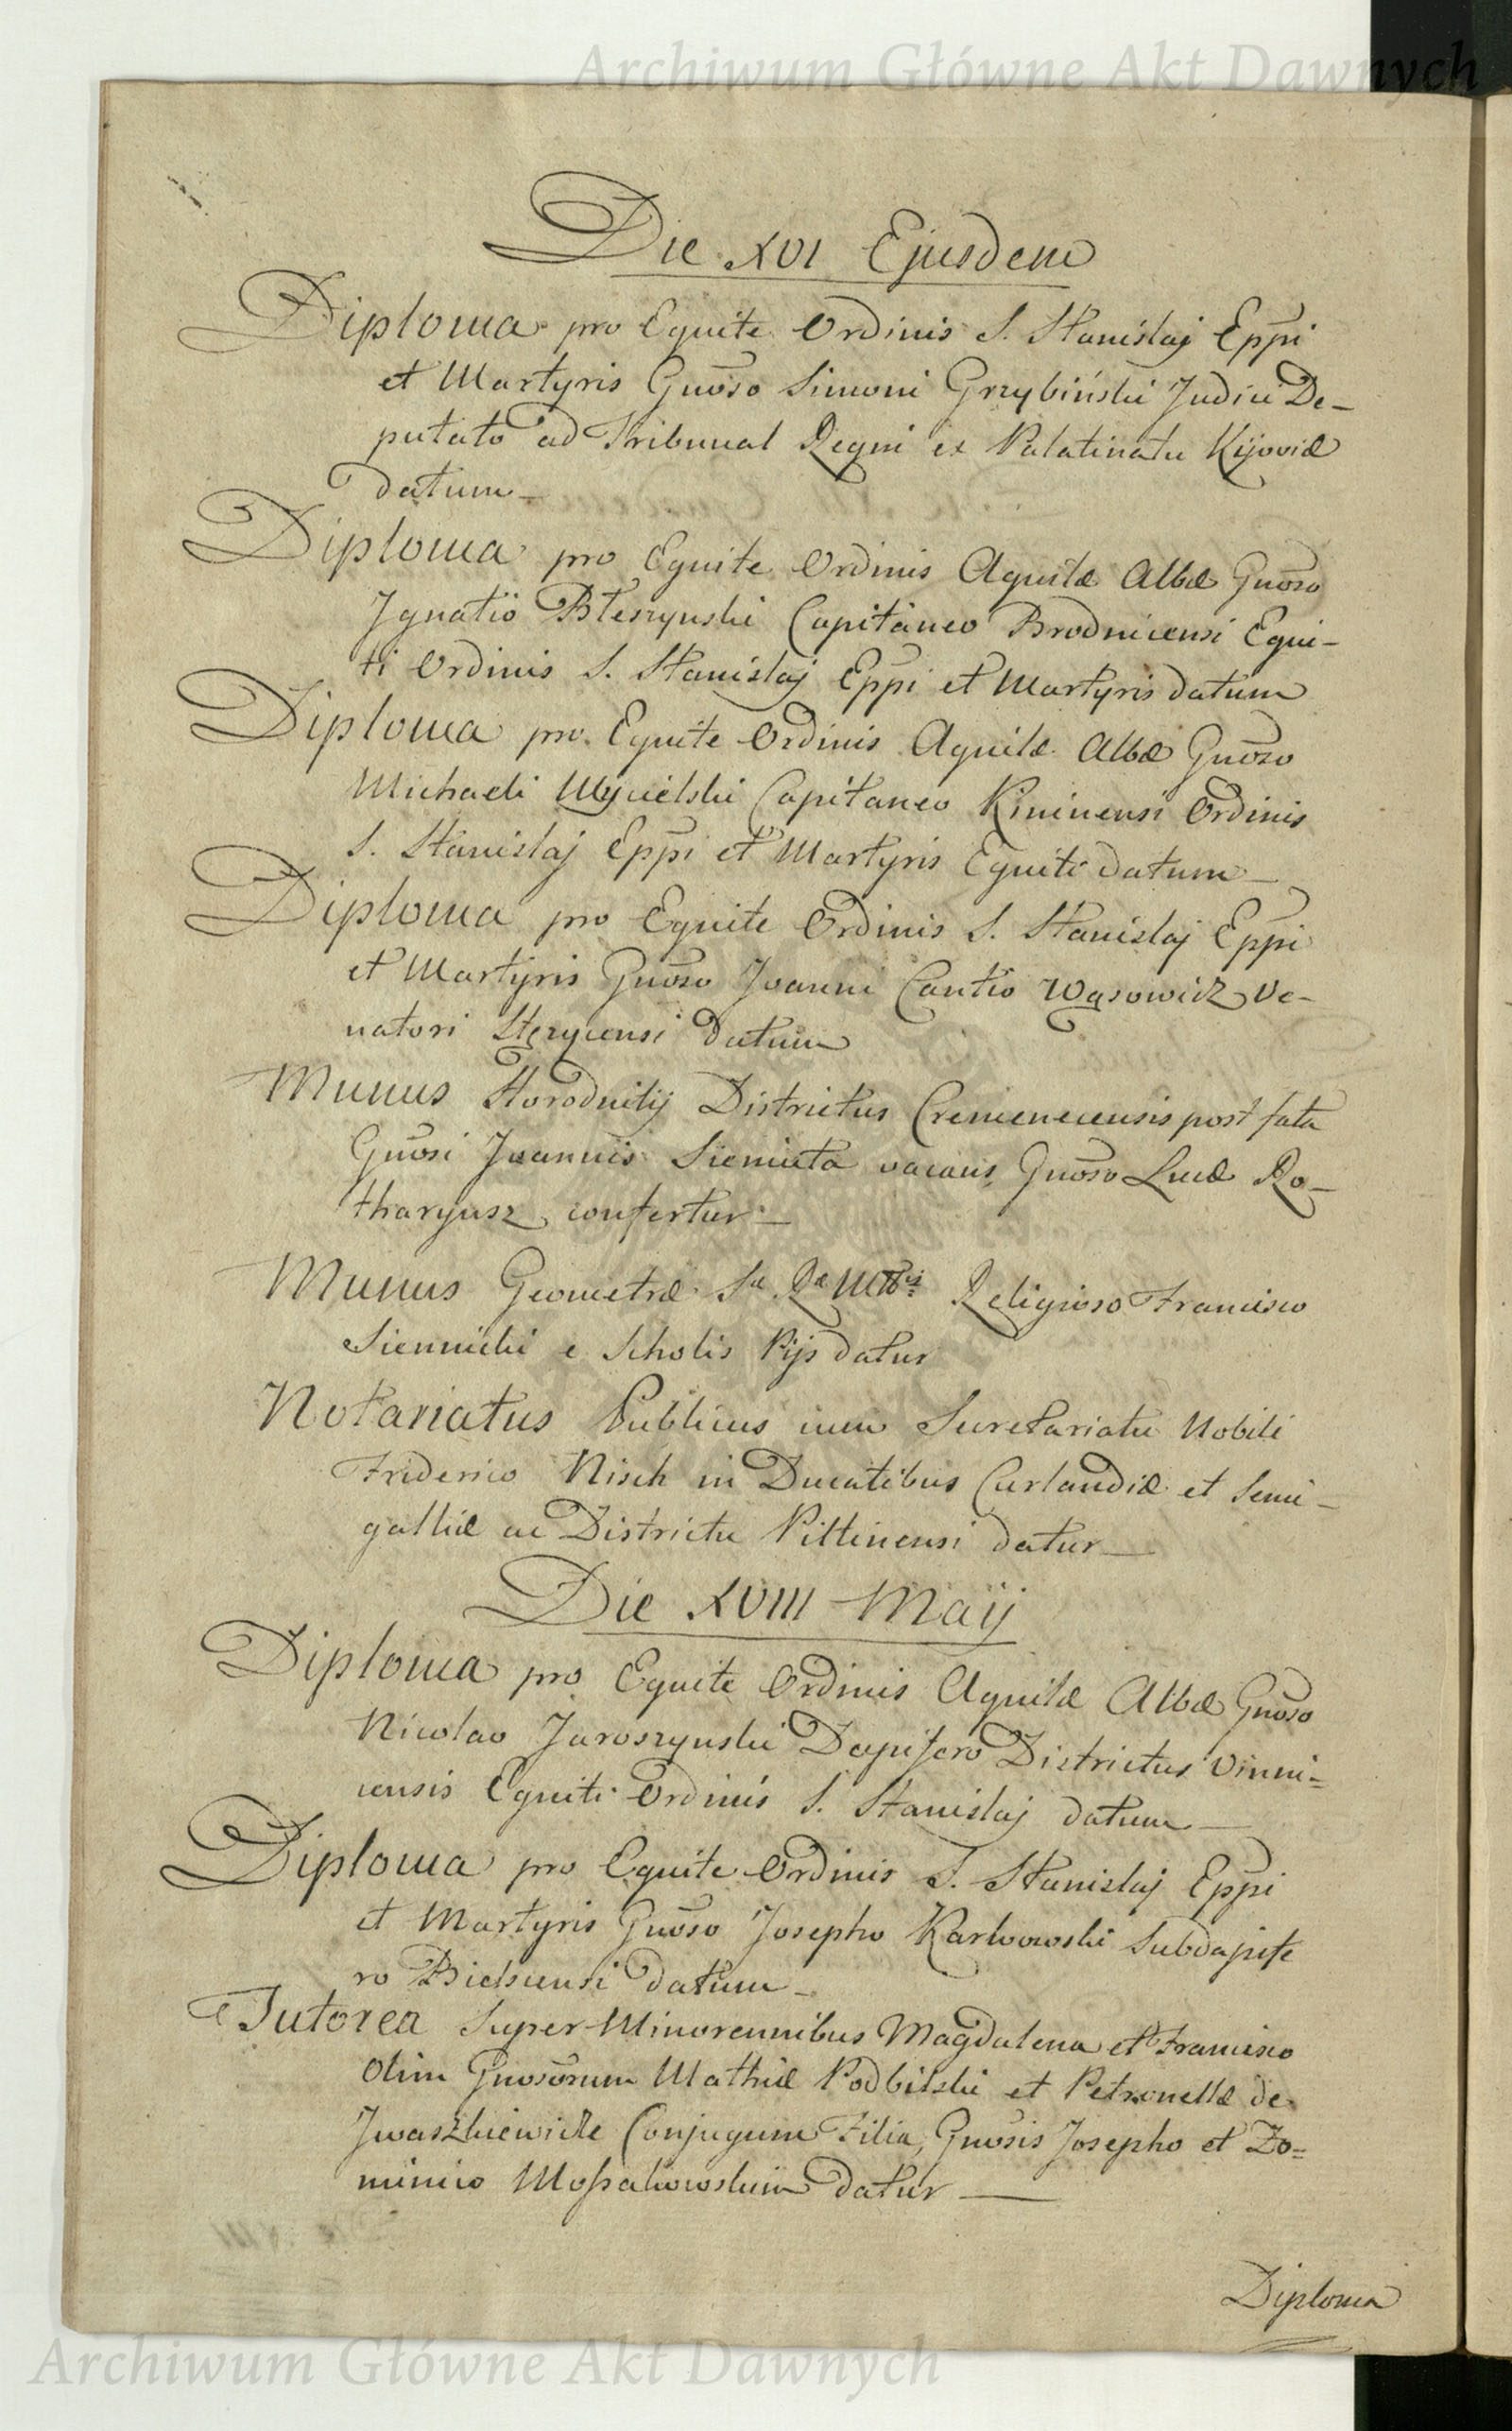 Archiwum Główne Akt Dawnych
Die XVI Ejusdem
Diploma pro Equite Ordinis S. Stanislaj Eppi
et Martyris Gnoso Simoni Grzybiński Judici De-
putato ad Tribunal Regni ex Palatinatu Kijoviæ
datum –
Diploma pro Equite Ordinis Aquilæ Albæ Gnoso
Ignatio Błeszynski Capitaneo Brodnicensi Equi-
ti Ordinis S. Stanislaj Eppi et Martyris datum
Diploma pro Equite Ordinis Aquilæ Albæ Gnoso
Michaeli Mycielski Capitaneo Kininensi Ordinis
S. Stanislaj Eppi et Martyris Equiti datum –
Diploma pro Equite Ordinis S. Stanislaj Eppi
et Martyris Gnoso Joanni Cantio Wąsowicz Ve-
natori Stęzycensi datum
Munus Horodnitij Districtus Cremenecensis post fata
Gnosi Joannis Siemięta vacans, Gnoso Lucæ Ro-
tharyusz confertur –
Munus Geometræ Sæ Ræ Mttis Religioso Francisco
Siennicki e Scholis Pijs datur
Notariatus Publicus cum Secretariatu Nobili
Friderico Nisch in Ducatibus Curlandiæ et Semi-
galliæ ac Districtu Piltinensi datur –
Die XVIII Maij
Diploma pro Equite Ordinis Aquilæ Albæ Gnoso
Nicolao Jaroszynski Dapifero Districtus Vinni=
censis Equiti Ordinis S. Stanislaj datum –
Diploma pro Equite Ordinis S. Stanislaj Eppi
et Martyris Gnoso Josepho Karwowski Subdapife
ro Bielscensi datum –
Tutorea Super Minorennibus Magdalena et Francisco
Olim Gnosorum Mathiæ Podbilski et Petronellæ de
Iwaszkiewicze Conjugum Filia, Gnosis Josepho et Do=
minico Moſsakowskim datur –
Diploma
Archiwum Główne Akt Dawnych